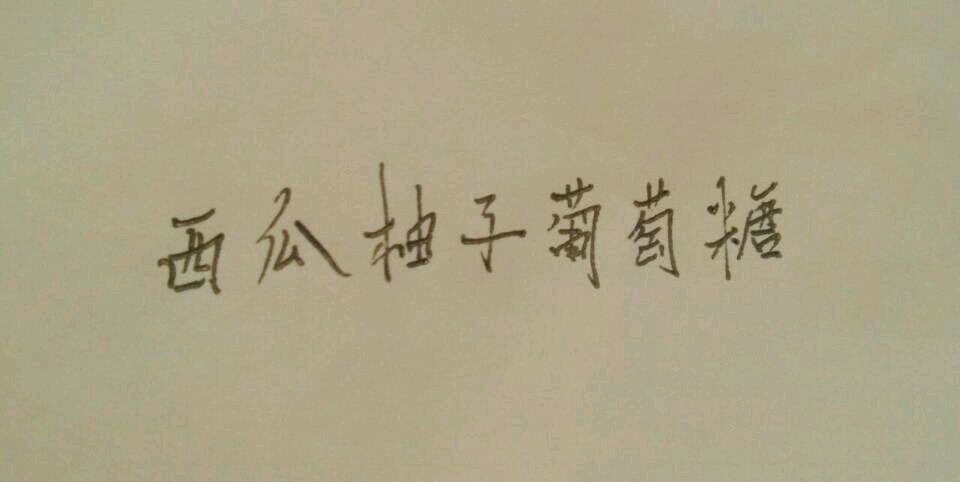 西瓜柚子葡萄糖